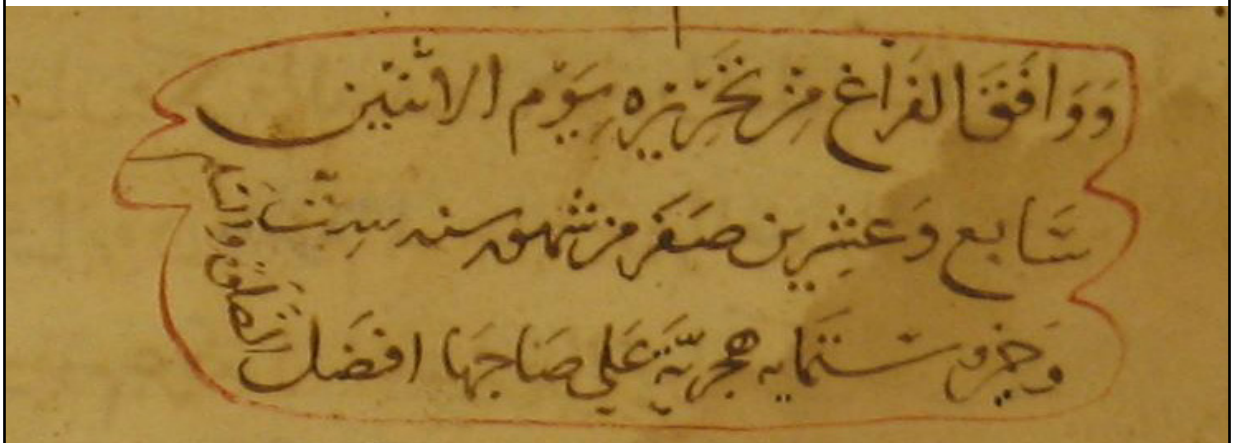 ووافق الفراغ من تحريره يوم الاثنين
سابع وعشرين صفر من شهور سنه ست
وستمايه هجرية على صاحبها افضل
الصلوة والسلام